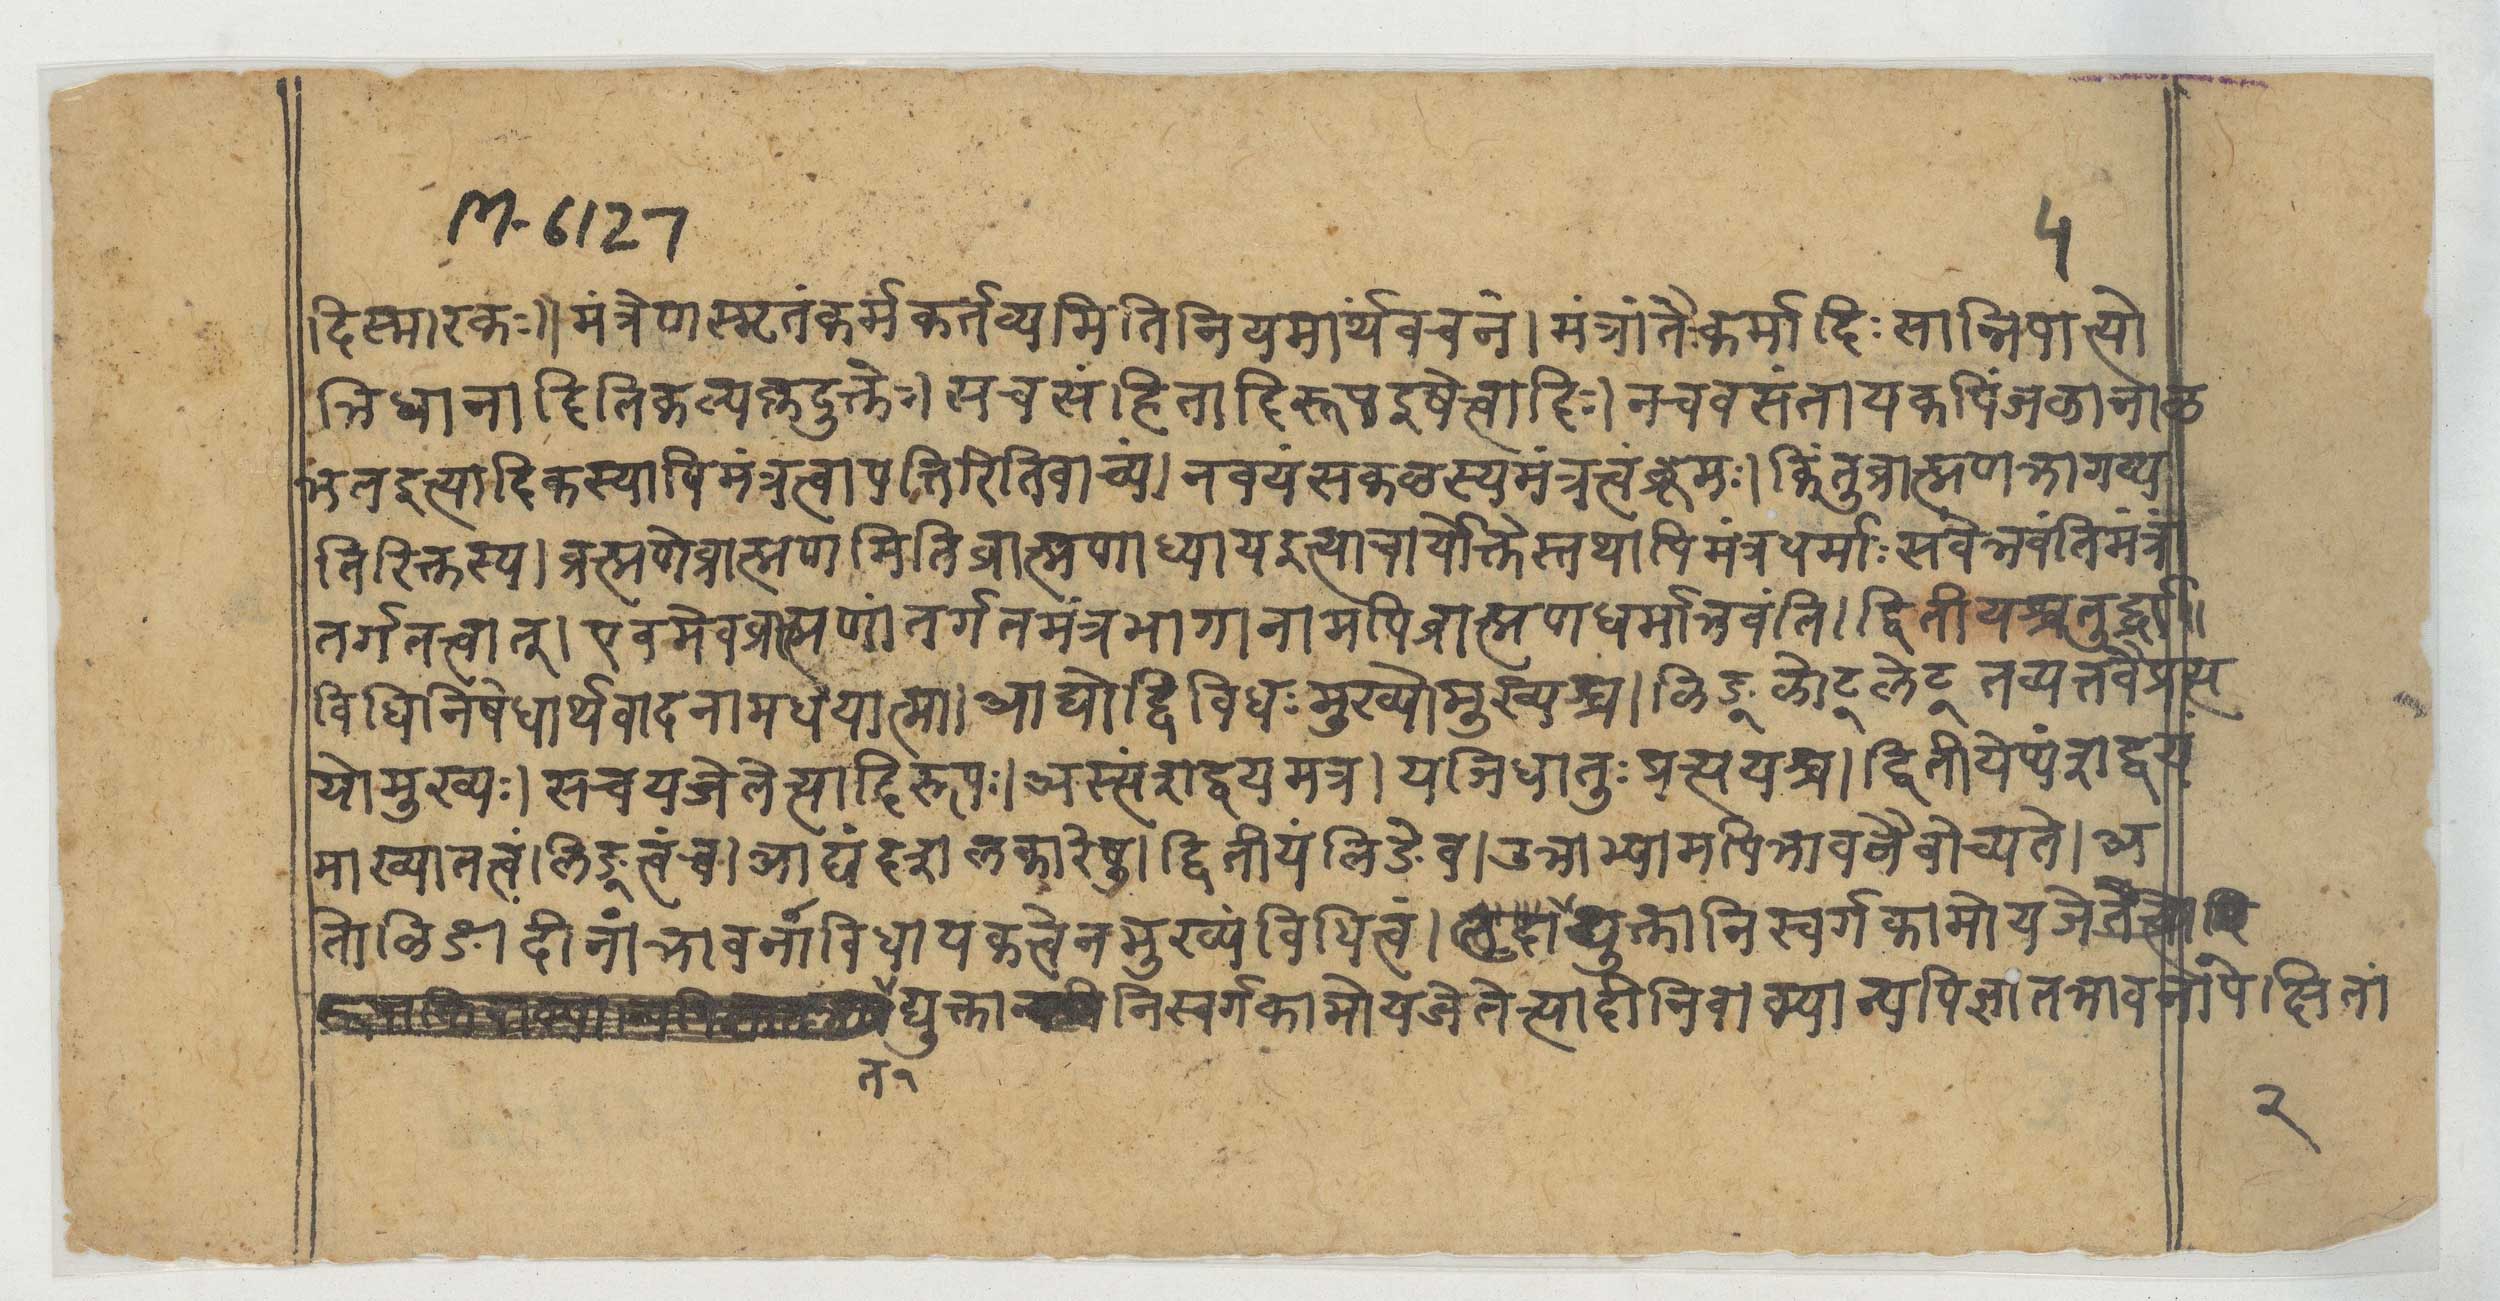 M-6127
५
दिस्मारकः।। मंत्रेणस्मृतंकर्मकर्तव्यमितिनियमार्थवचनं। मंत्रांतैःकर्मादिः सान्निपात्यो
भिधानादितिकल्पकृदुक्तेः। सचसंहितादिरूपइषेत्वादिः। नचवसंतायकपिंजळानाळ
भतइत्यादिकस्यापिमंत्रत्वापत्तिरितिवाच्यं। नवयंसकळस्यमंत्रत्वंब्रूमः। किंतुब्राह्मणभागव्य
तिरिक्तस्य। ब्रह्मणेब्राह्मणमितिब्राह्मणाध्यायइत्याचार्योक्तेस्तथापिमंत्रधर्माःसर्वेभवंतिमंत्रां
तर्गतत्वात्। एवमेवब्राह्मणांतर्गतमंत्रभागानामपिब्राह्मणधर्माभवंति। द्वितीयश्चतुर्द्धा।
विधिनिषेधार्थवादनामधेयात्मा। आद्योद्विविधः मुख्योमुख्यश्च। लिङ्लोट्लेट्तव्यतवैप्रत्य
योमुख्यः। सचयजेतेत्यादिरूपः। अस्त्यंशद्वयमत्र। यजिधातुः प्रत्ययश्च। द्वितीयेप्यंशद्वयं
माख्यातत्वं। लिङ्त्वंच। आद्यंदशलकारेषु। द्वितीयंलिङेव। उभाभ्यामपिभावनैवोच्यते। अ
तोलिङादीनांभावनांविधायकत्वेनमुख्यंविधित्वं। द्युक्तानिस्वर्गकामोयजेतेत्यादि
द्युक्तानिस्वर्गकामोयजेतेत्यादीनिवाक्यान्यपिज्ञातभावनांपेक्षितां
त१
२